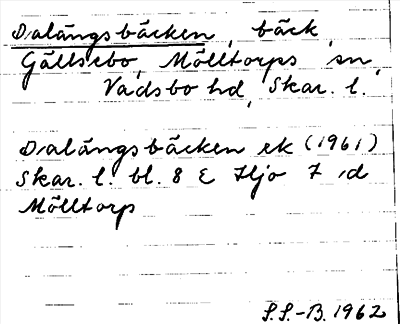 Dalängsbäcken, bäck,
Gällsebo, Mölltorps sn,
Vadsbo hd, Skar. l.
Dalängsbäcken ek (1961)
Skar. l. bl. 8 E Hjo 7 d
Mölltorp
S.S.-B. 1962